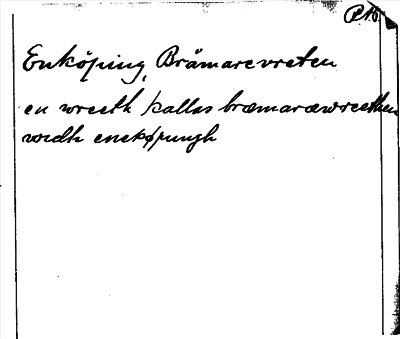 P.16
Enköping, Brämarevreten
en wreeth kallas bræmaræwreethen
vidh enekøpungh